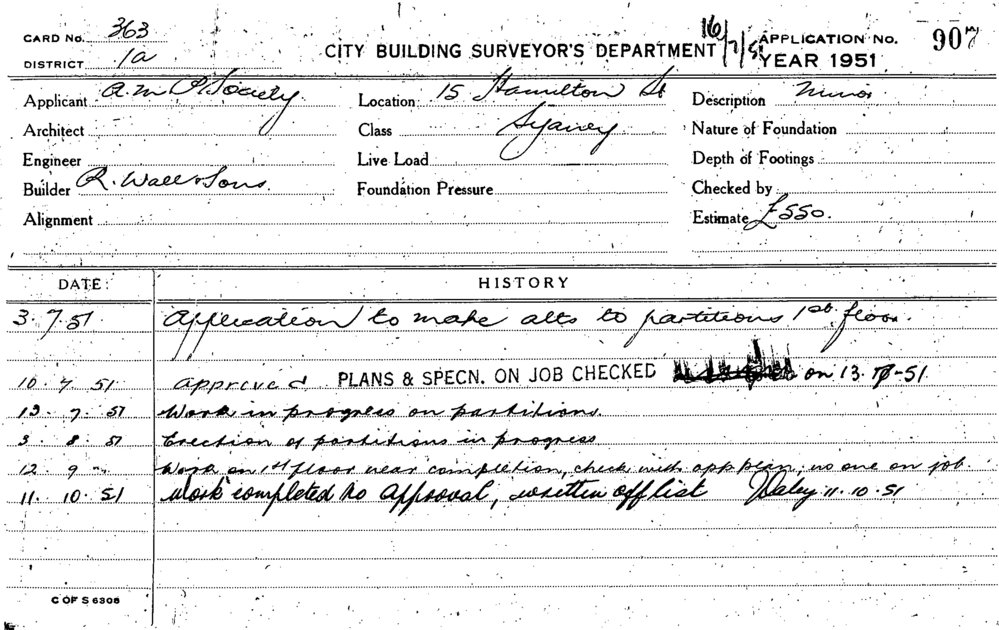 CARD No. 363
DISTRICT 1a
CITY BUILDING SURVEYOR'S DEPARTMENT
16/7/51
APPLICATION No. 907
YEAR 1951
Applicant A.M.P. Society Location 15 Hamilton St Description Minor
Architect Class Sydney Nature of Foundation
Engineer Live Load Depth of Footings
Builder R. Wall & Sons. Foundation Pressure Checked by
Alignment Estimate £550.
DATE: HISTORY
3.7.51 Application to make alts to partitions 1st floor.
10 7 51 Approved PLANS & SPECN. ON JOB CHECKED on 13.7-51
13. 7. 51 Work in progress on partitions
3. 8. 51 Erection of partitions in progress
12 9 " Work on 1st floor near completion, check with app plan, no one on job.
11. 10. 51 Work completed to Approval, written off list 11.10.51
C OF S 6306